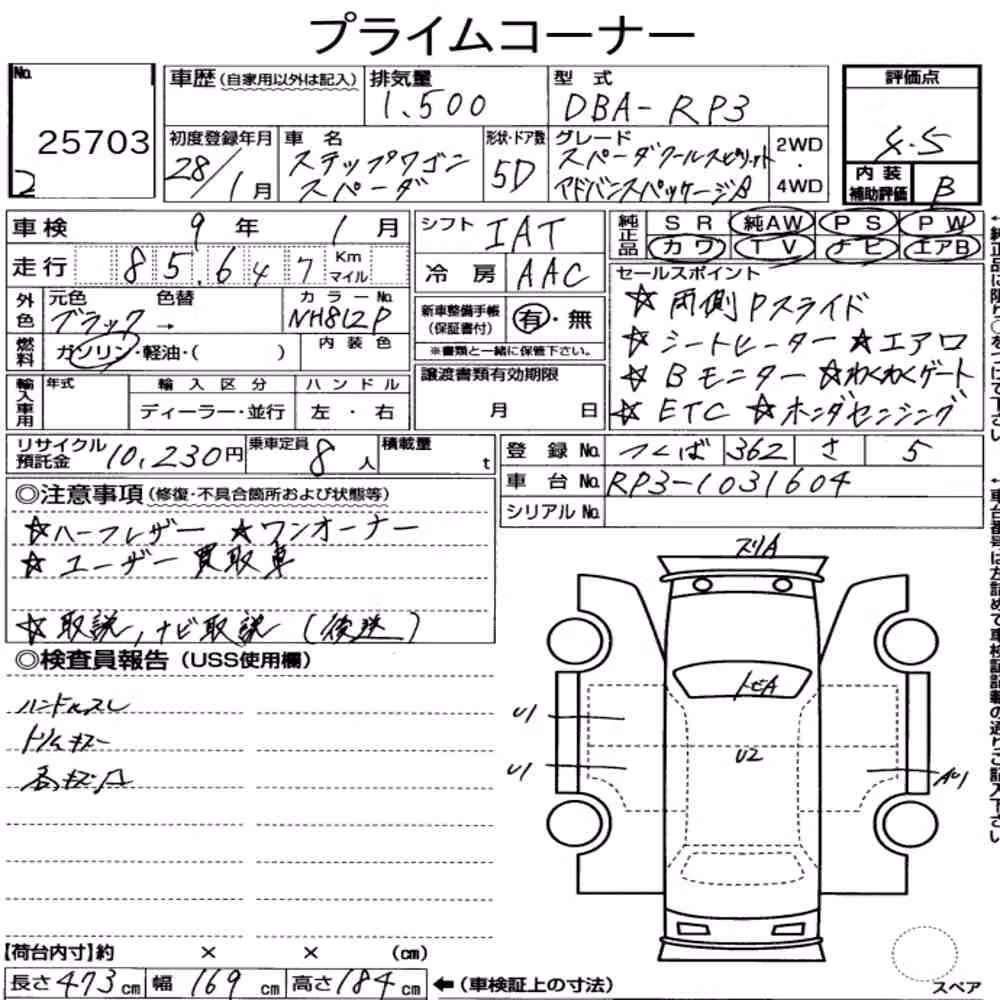 プライムコーナー
No. 25703
2
車歴 (自家用以外は記入)
排気量 1.500
型式 DBA-RP3
評価点 4.5
初度登録年月 28/1月
車名 ステップワゴン スパーダ
形状・ドア数 5D
グレード スパーダクールスピリット アドバンスパッケージβ
2WD・4WD
内装補助評価 B
車検 9年 1月
シフト IAT
純正品 SR 純AW PS PW
カワ TV ナビ エアB
走行 85,647 Km マイル
冷房 AAC
セールスポイント
☆両側Pスライド
☆シートヒーター ☆エアロ
☆Bモニター ☆わくわくゲート
☆ETC ☆ホンダセンシング
外色 元色 ブラック → 色替
カラーNo. NH812P
新車整備手帳(保証書付) 有・無
※書類と一緒に保管下さい。
燃料 ガソリン・軽油・( )
内装色
輸入車用 年式
輸入区分 ディーラー・並行
ハンドル 左・右
譲渡書類有効期限 月 日
リサイクル預託金 10,230円
乗車定員 8人
積載量 t
登録No. つくば 362 さ 5
車台No. RP3-1031604
シリアルNo.
◎注意事項(修復・不具合箇所および状態等)
☆ハーフレザー ☆ワンオーナー
☆ユーザー買取車
☆取説,ナビ取説(後送)
◎検査員報告(USS使用欄)
ハンドルスレ
トリムキズ
スリA
トビA
U1
U2
U1
AU1
【荷台内寸】約 × × (cm)
長さ473cm 幅169cm 高さ184cm ←(車検証上の寸法)
スペア
←純正品に限り○をつけて下さい
←車台番号は左詰めで車検証記載の通りご記入下さい